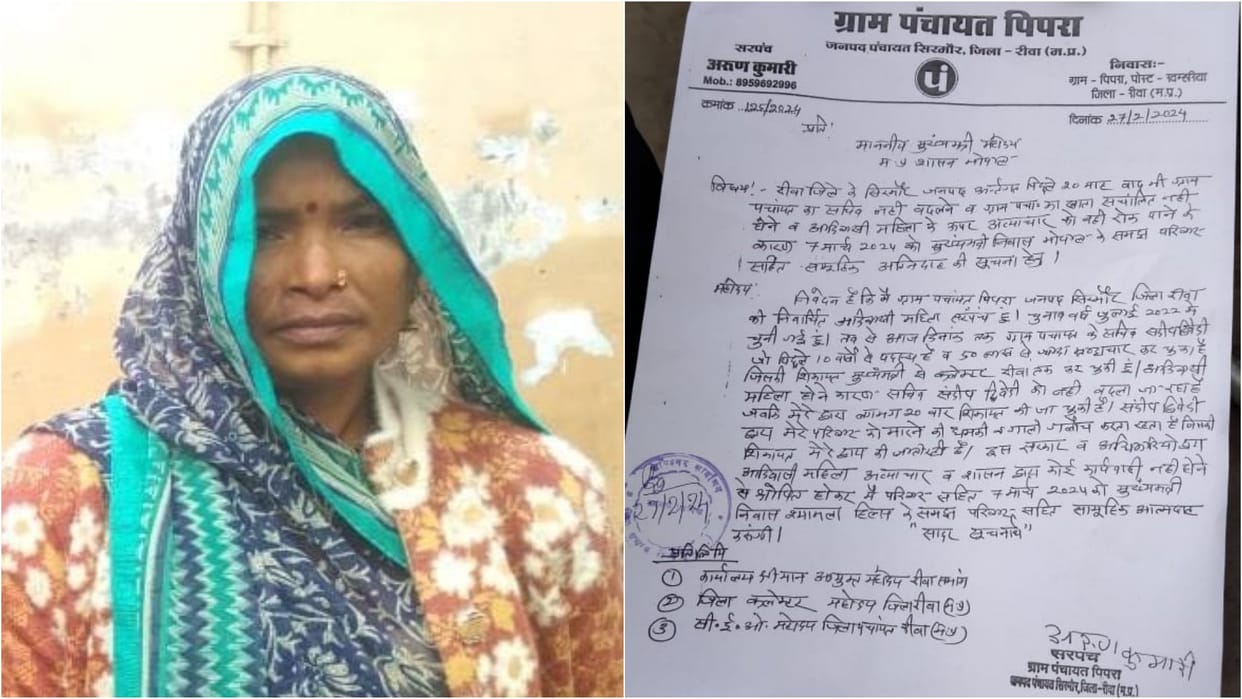 ग्राम पंचायत पिपरा
जनपद पंचायत सिरमौर, जिला - रीवा (म.प्र.)
सरपंच
अरूण कुमारी
Mob.: 8959692996
पं
निवास:-
ग्राम - पिपरा, पोस्ट - खम्हरिया
जिला - रीवा (म.प्र.)
क्रमांक 126/2024
दिनांक 27/2/2024
प्रति!
माननीय मुख्यमंत्री महोदय
म प्र शासन भोपाल
विषय!- रीवा जिले के सिरमौर जनपद अन्तर्गत पिछले 20 माह बाद भी ग्राम
पंचायत का सचिव नही बदलने व ग्राम पंचा० का खाता संचालित नही
होने व आदिवासी महिला के ऊपर अत्याचार को नही रोक पाने के
कारण 7 मार्च 2024 को मुख्यमंत्री निवास भोपाल के समक्ष परिवार
सहित सामूहिक अग्निदाह की सूचना हेतु।
महोदय!
निवेदन है कि मै ग्राम पंचायत पिपरा जनपद सिरमौर जिला रीवा
की निर्वाचित आदिवासी महिला सरपंच हूं। चुनाव वर्ष जुलाई 2022 मे
चुनी गई हूं। तब से आज दिनांक तक ग्राम पंचायत के सचिव संदीप द्विवेदी
जो पिछले 10 वर्षो से पदस्थ है व 50 लाख से ज्यादा भ्रष्टाचार कर चुका है
जिसकी शिकायत मुख्यमंत्री से कलेक्टर रीवा तक कर चुकी हूं। आदिवासी
महिला होने कारण सचिव संदीप द्विवेदी को नही बदला जा रहा है
जबकि मेरे द्वारा लगभग 20 बार शिकायत की जा चुकी है। संदीप द्विवेदी
द्वारा मेरे परिवार को मारने की धमकी व गाली गलौच करता रहता है जिसकी
शिकायत मेरे द्वारा की जा रही है। इस सरकार व अधिकारियो द्वारा
आदिवासी महिला अत्याचार व शासन द्वारा कोई कार्यवाही नही होने
से क्षोभित होकर मै परिवार सहित 7 मार्च 2024 को मुख्यमंत्री
निवास श्यामला हिल्स के समक्ष परिवार सहित सामूहिक आत्मदाह
करूंगी। "सादर सूचनार्थ"
27/2/24
प्रतिलिपि
① कार्यालय श्रीमान आयुक्त महोदय रीवा संभाग
② जिला कलेक्टर महोदय जिला रीवा (म प्र)
③ सी.ई.ओ. महोदय जिला पंचायत रीवा (म प्र)
अरुण कुमारी
सरपंच
ग्राम पंचायत पिपरा
जनपद पंचायत सिरमौर, जिला-रीवा (म.प्र.)